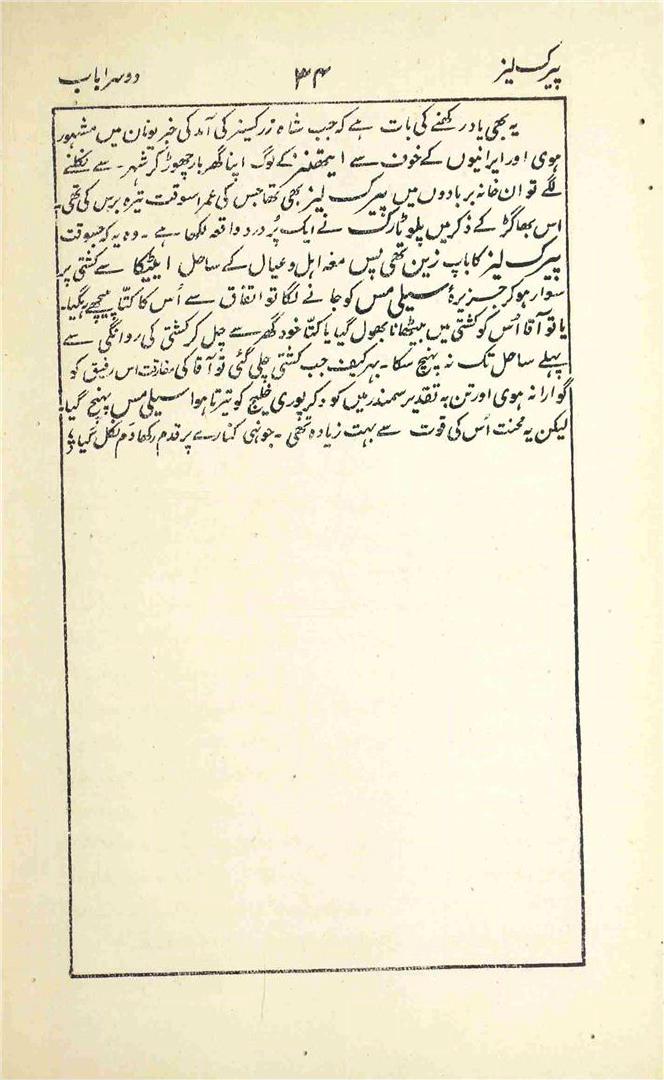 پیرک لیز ۳۴ دوسرا باب
یہ بھی یاد رکھنے کی بات ہے کہ جب شاہ زرکسینر کی آمد کی خبر یونان میں مشہور
ہوی اور ایرانیوں کے خوف سے ایتھنز کے لوگ اپنا گھر بار چھوڑ کر شہر۔ سے نکلنے
لگے تو ان خانہ بربادوں میں پیرک لیز بھی تھا جس کی عمر اسوقت تیرہ برس کی تھی
اس بھاگڑ کے ذکر میں پلوٹارک نے ایک پُر درد واقعہ لکھا۔ ہے۔ وہ یہ کہ جسوقت
پیرک لیز کا باپ زین تھی پس معہ اہل و عیال کے ساحل ایٹیکا سے کشتی پر
سوار ہو کر جزیرۂ سیلی مس کو جانے لگا تو اتفاق سے اُس کا کتّا پیچھے رہگیا۔
یا تو آقا اُس کو کشتی میں بیٹھانا بھول گیا یا کتّا خود گھر سے چل کر کشتی کی روانگی سے
پہلے ساحل تک نہ پہنچ سکا۔ بہر کیف جب کشتی چلی گئی تو آقا کی مفارقت اس رفیق کو
گوارا نہ ہوی اور تن بہ تقدیر سمندر میں کود کر پوری خلیج کو تیرتا ہوا سیلی مس پہنچ گیا۔
لیکن یہ محنت اُس کی قوت سے بہت زیادہ تھی۔ جونہی کنارے پر قدم رکھا دَم نکل گیا